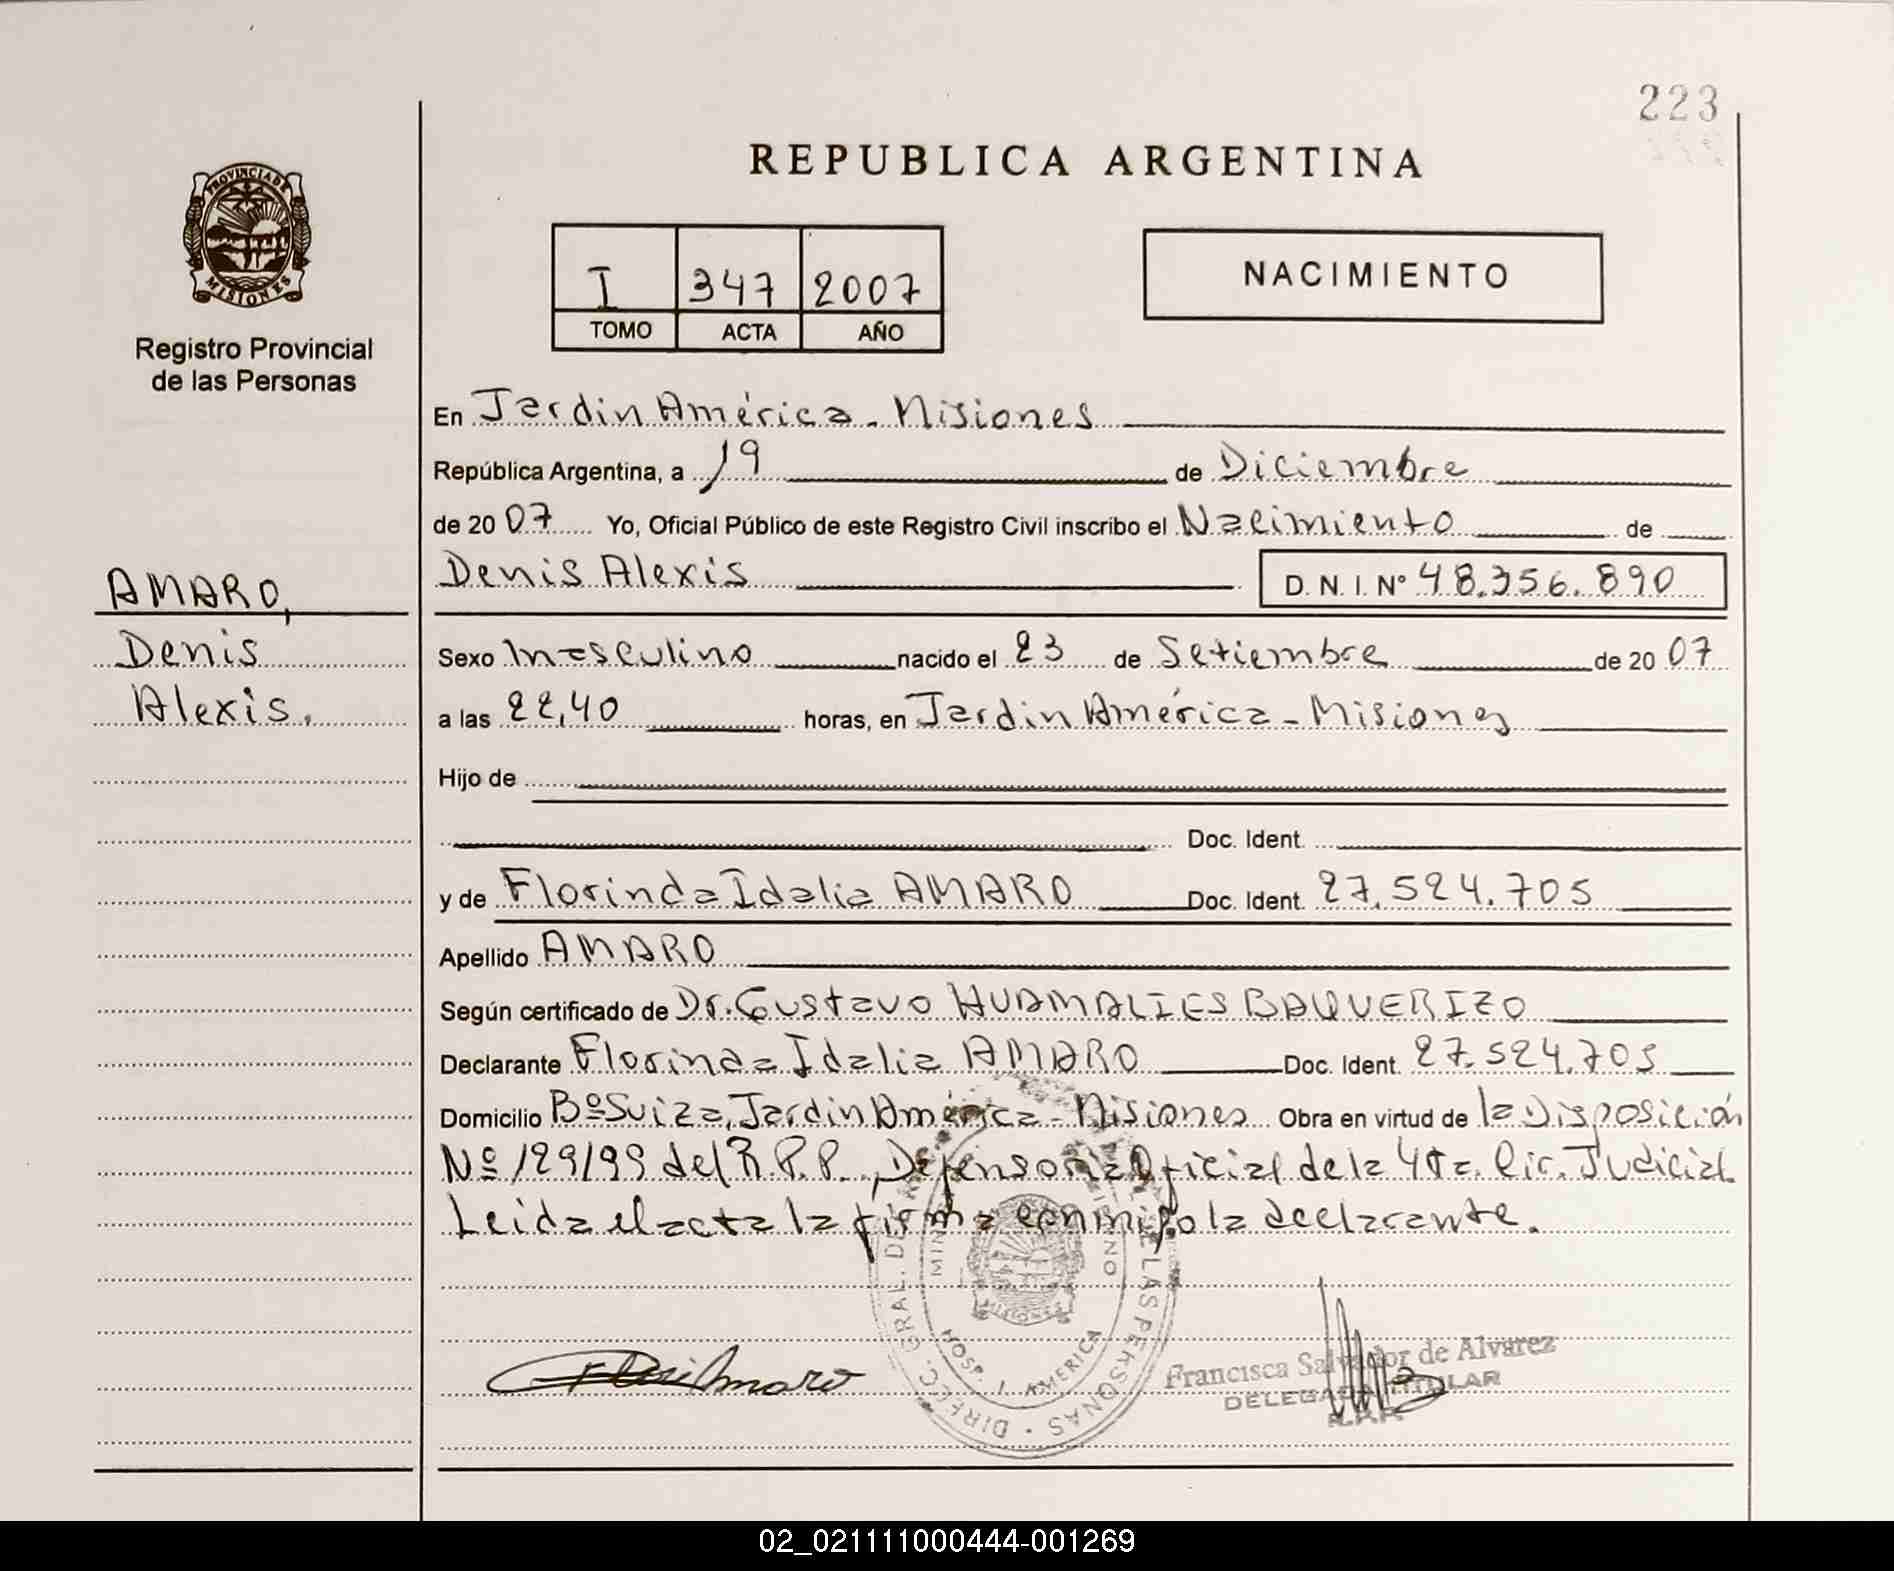 223
REPUBLICA ARGENTINA
PROVINCIA DE
MISIONES
Registro Provincial
de las Personas
I 347 2007
TOMO ACTA AÑO
NACIMIENTO
En Jardin América - Misiones
República Argentina, a 19 de Diciembre
de 2007 Yo, Oficial Público de este Registro Civil inscribo el Nacimiento de
AMARO,
Denis
Alexis.
Denis Alexis D. N. I. Nº 48.356.890
Sexo Masculino nacido el 23 de Setiembre de 2007
a las 22,40 horas, en Jardin América - Misiones
Hijo de
Doc. Ident.
y de Florinda Idalia AMARO Doc. Ident. 27.524.705
Apellido AMARO
Según certificado de Dr. Gustavo HUAMALIES BAQUERIZO
Declarante Florinda Idalia AMARO Doc. Ident. 27.524.705
Domicilio Bº Suiza, Jardin América - Misiones Obra en virtud de la Disposición
Nº 129/99 del R.P.P., Defensoria Oficial de la 4ta. Cir. Judicial.
Leida el acta la firma conmigo la declarante.
HOSP. J. AMERICA
DE LAS PERSONAS · DIREC. GRAL. DE
Amaro
Francisca Salvador de Alvarez
DELEGADA TITULAR
R.P.P.
02_021111000444-001269